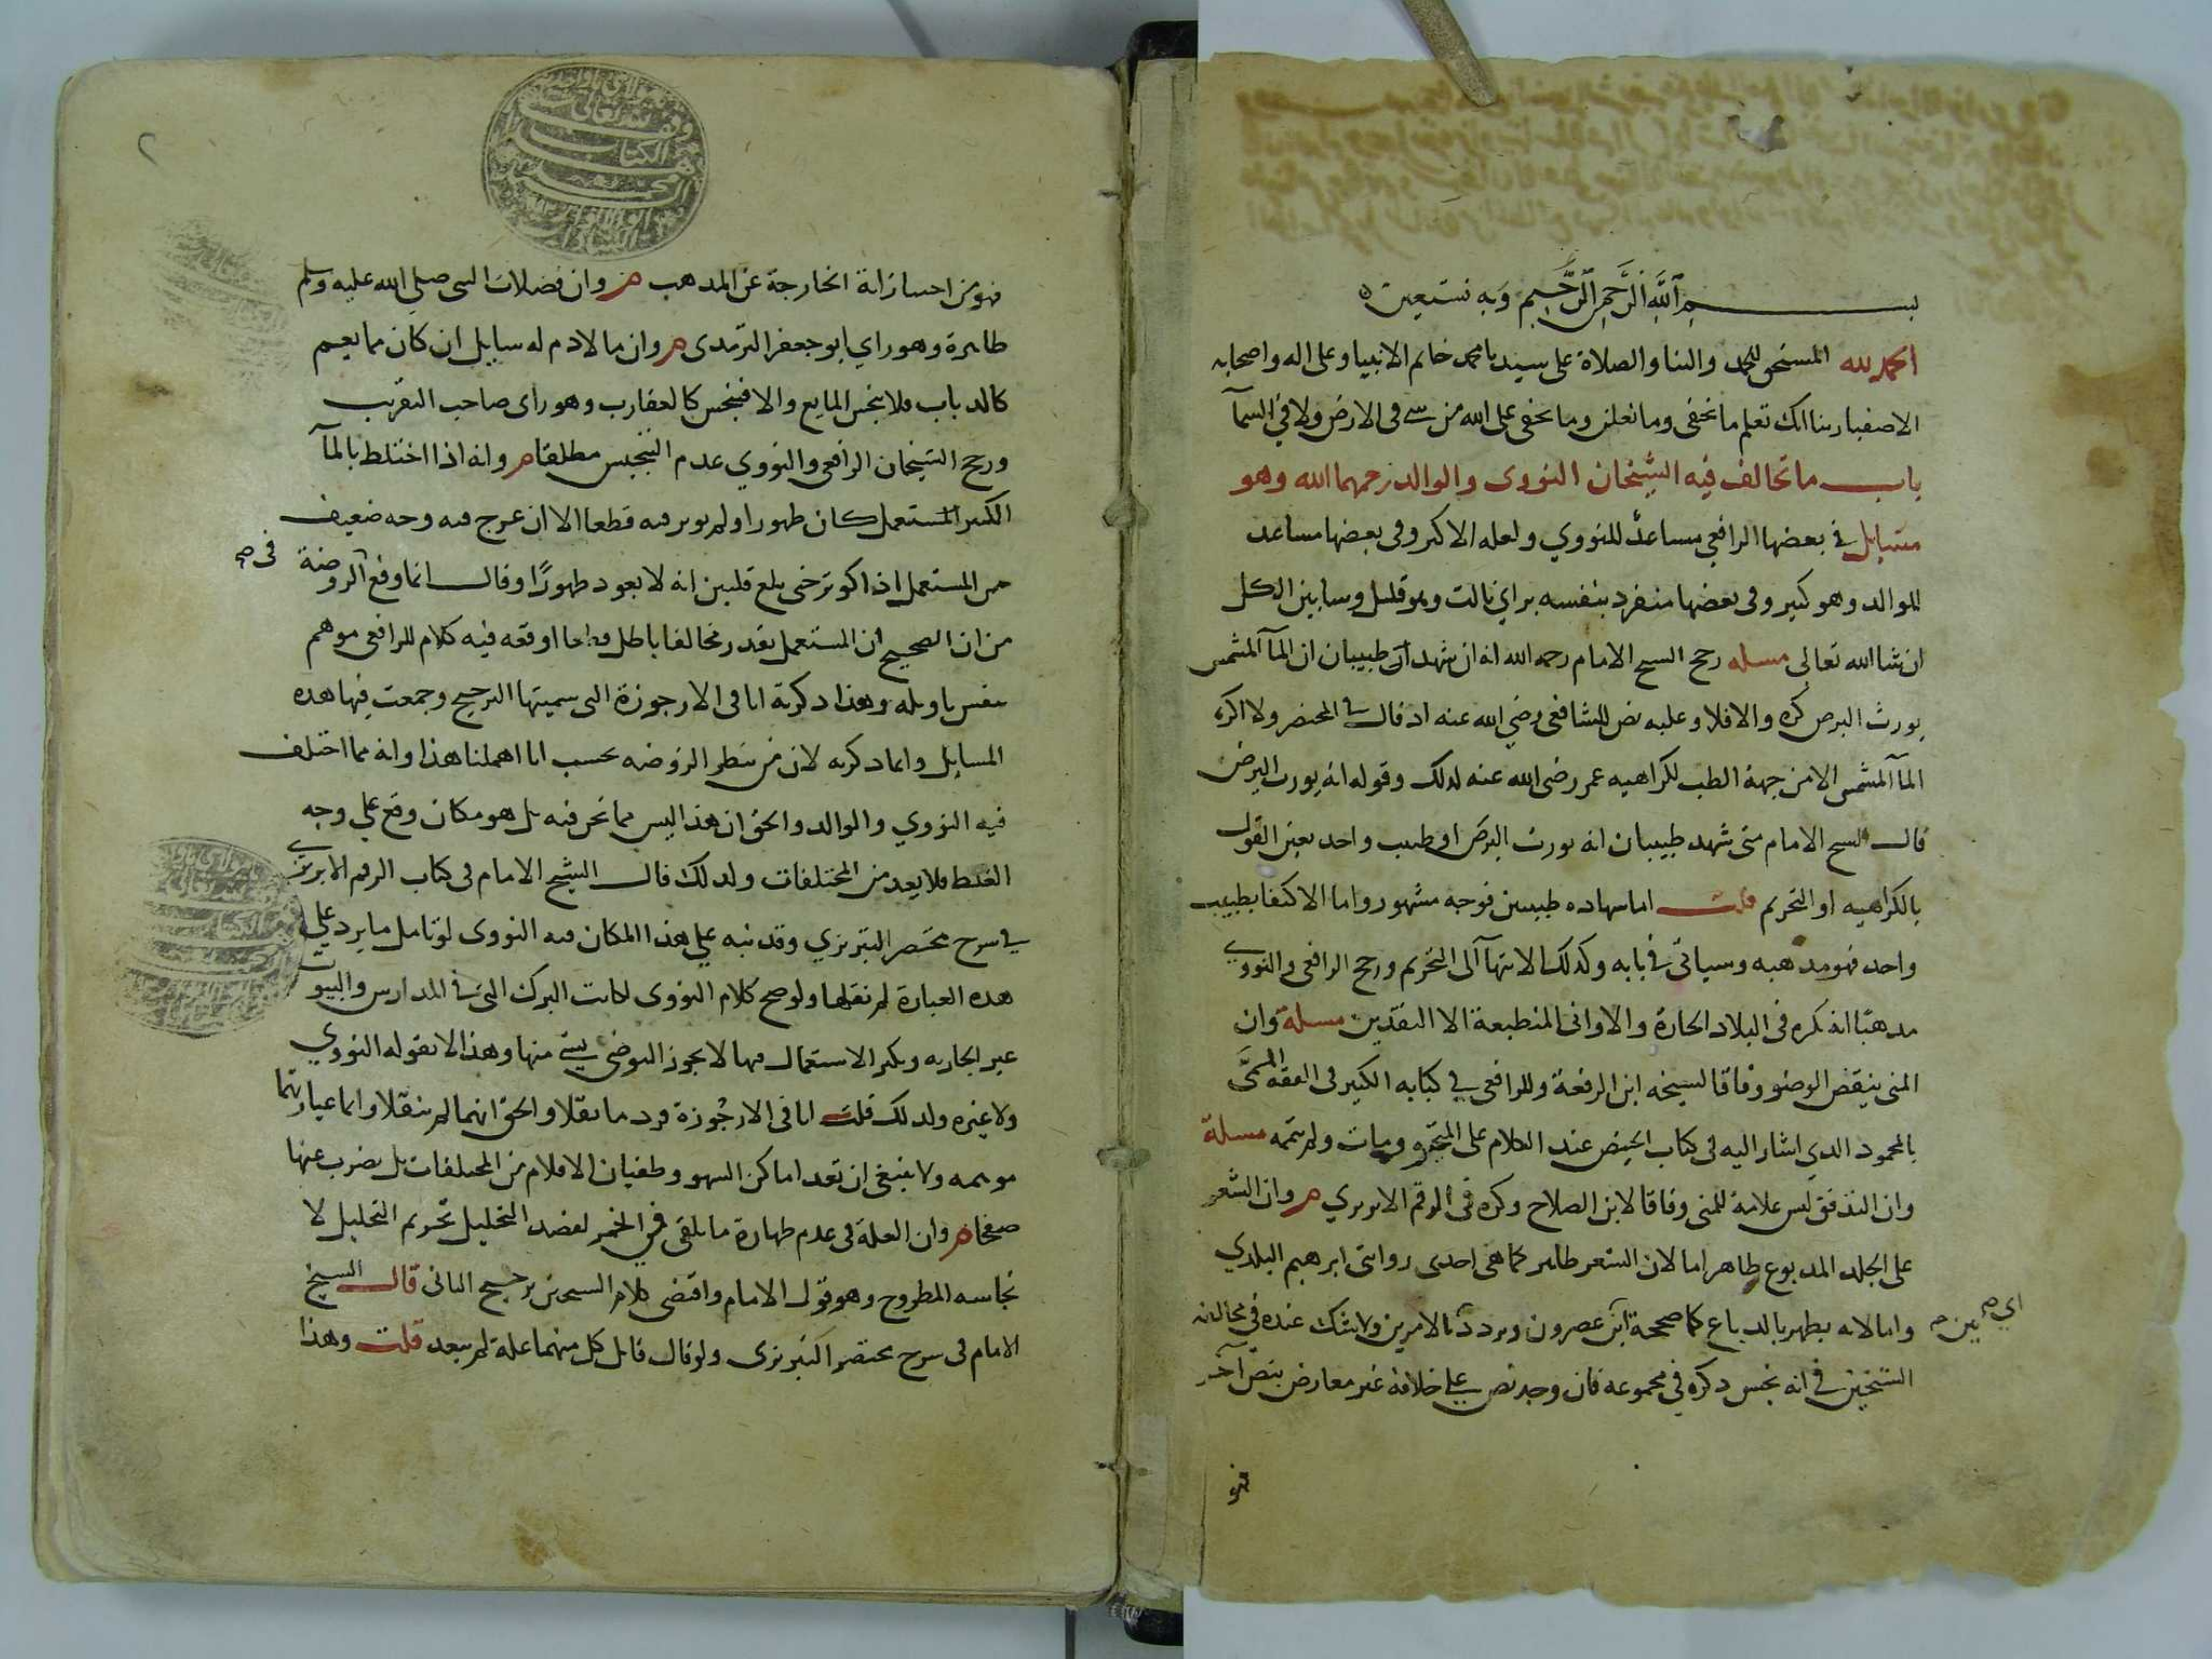 بسم الله الرحمن الرحيم وبه نستعين
الحمد لله المستحق للحمد والثنا والصلاة على سيدنا محمد خاتم الانبيا وعلى اله واصحابه
الاصفيا ربنا انك تعلم ما نخفى وما نعلن وما يخفى على الله من شى فى الارض ولا فى السمآ
باب ما تخالف فيه الشيخان النووى والوالد رحمهما الله وهو
مسايل فى بعضها الرافعي مساعد للنووي ولعله الاكثر وفى بعضها مساعد
للوالد وهو كثير وفى بعضها منفرد بنفسه براي ثالث وهو قليل وسابين الكل
ان شا الله تعالى مسله رجح الشيخ الامام رحمه الله انه ان شهد طبيبان ان المآ المشمس
يورث البرص كره والا فلا وعليه نص الشافعى رضى الله عنه اذ قال فى المختصر ولا اكره
المآ المشمس الا من جهة الطب لكراهيه عمر رضى الله عنه لذلك وقوله انه يورث البرص
قال الشيخ الامام متى شهد طبيبان انه يورث البرص او طبيب واحد تعين القول
بالكراهيه او التحريم قلت اما شهاده طبيبين فوجه مشهور واما الاكتفا بطبيب
واحد فهو مذهبه وسياتى فى بابه وكذلك الانتهآ الى التحريم ورجح الرافعى والنووي
مذهبا انه يكره فى البلاد الحارة والاوانى المنطبعة الا النقدين مسلة وان
المنى ينقض الوضو وفاقا لشيخه ابن الرفعة وللرافعى فى كتابه الكبير فى الفقه المسمى
بالمحمود الذي اشار اليه فى كتاب الحيض عند الكلام على المتحيرة ومات ولم يتمه مسلة
وان التدفق ليس علامة للمنى وفاقا لابن الصلاح ذكره فى الرقم الابريزي م وان الشعر
على الجلد المدبوغ طاهر اما لان الشعر طاهر كما هى احدى روايتى ابرهيم البلدي
واما لانه يطهر بالدباغ كما صححه ابن عصرون وتردد الامرين ولا شك عنده فى مخالفته
اي من صح
الشيخين فى انه نجس ذكره فى مجموعه فان وجد نص على خلافه غير معارض بنص آخر
فهو
٢
فهو من احساراته الخارجة عن المذهب م وان فضلات النبى صلى الله عليه وسلم
طاهرة وهو راي ابو جعفر الترمذى م وان ما لا دم له سايل ان كان مما يعم
كالذباب فلا ينجس المايع والا فينجس كالعقارب وهو راى صاحب التقريب
ورجح الشيخان الرافعى والنووي عدم التنجيس مطلقا م وانه اذا اختلط بالمآ
الكثير المستعمل كان طهورا ولم يوثر فيه قطعا الا ان يخرج فيه وجه ضعيف
من المستعمل اذا كوثر حتى بلغ قلتين انه لا يعود طهورًا وقال انما وقع فى الروضة
فى صح
من ان الصحيح ان المستعمل يقدر مخالفا باطل قطعا اوقعه فيه كلام للرافعى موهم
وهذا ذكرته انا فى الارجوزة التى سميتها الترجيح وجمعت فيها هذه
المسايل وانما ذكرته لان من ينظر الروضه يحسب انا اهملنا هذا وانه مما اختلف
فيه النووي والوالد والحق ان هذا ليس مما نحن فيه بل هو مكان وقع على وجه
الغلط فلا يعد من المختلفات ولذلك قال الشيخ الامام فى كتاب الرقم الابريزى
فى شرح مختصر التبريزي وقد نبه على هذا المكان فيه النووى لو تامل ما يرد على
هذه العبارة لم يقلها ولو صح كلام النووى لكانت البرك التى فى المدارس والبيوت
غير الجاريه ويكثر الاستعمال فيها لا يجوز التوضى بشى منها وهذا لا يقوله النووي
ولا غيره ولذلك قلت انا فى الارجوزة فرد ما نقلا والحق انهما لم ينقلا وانما عبارتهما
موهمه ولا ينبغى ان تعد اماكن السهو وطغيان الاقلام من المختلفات بل يضرب عنها
صفحا م وان العلة فى عدم طهارة ما يلقى فى الخمر لقصد التخليل تحريم التخليل لا
نجاسه المطروح وهو قول الامام واقتضى كلام الشيخين ترجيح الثانى قال الشيخ
الامام فى شرح مختصر التبريزى ولو قال قايل كل منهما علة لم يبعد قلت وهذا